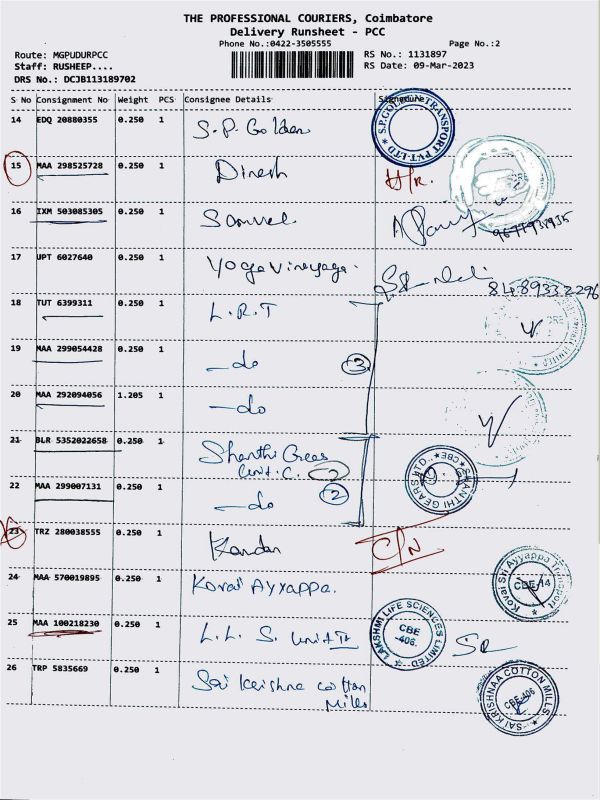 THE PROFESSIONAL COURIERS, Coimbatore
Delivery Runsheet - PCC
Phone No.:0422-3505555
Page No.:2
Route: MGPUDURPCC
RS No.: 1131897
Staff: RUSHEEP....
RS Date: 09-Mar-2023
DRS No.: DCJB113189702
S No Consignment No Weight PCS Consignee Details Signature
14 EDQ 20880355 0.250 1 S.P. Golden
S.P.GOLDEN TRANSPORT PVT LTD
15 MAA 298525728 0.250 1 Dinesh
16 IXM 503085305 0.250 1 Samuel
17 UPT 6027640 0.250 1 Yoga Vinayaga.
8489332296
18 TUT 6399311 0.250 1 L.R.T
19 MAA 299054428 0.250 1 - do 3
20 MAA 292094056 1.205 1 - do
21 BLR 5352022658 0.250 1 Shanthi Gears
Unit. C.
SHANTHI GEARS LTD. CBE
22 MAA 299007131 0.250 1 - do 2
23 TRZ 280038555 0.250 1 Kandan C/N
24 MAA 570019895 0.250 1 Kovai Ayyappa.
Kovai Sri Ayyappa Transport CBE-14
25 MAA 100218230 0.250 1 L.L.S. Unit II
LAKSHMI LIFE SCIENCES LIMITED CBE -406.
26 TRP 5835669 0.250 1 Sai Krishna cotton
Mills
SAI KRISHNAA COTTON MILLS CBE-406